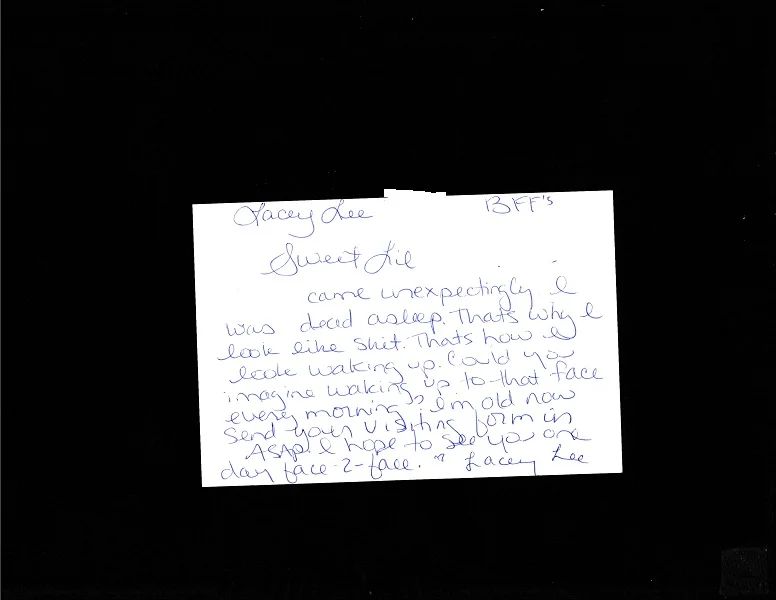 Lacey Lee BFF's
Sweet Lil
came unexpectingly I
was dead asleep. Thats why I
look like shit. Thats how I
look waking up. Could you
imagine waking up to that face
every morning? I'm old now
Send your visiting form in
ASAP. I hope to see you one
day face-2-face. " Lacey Lee